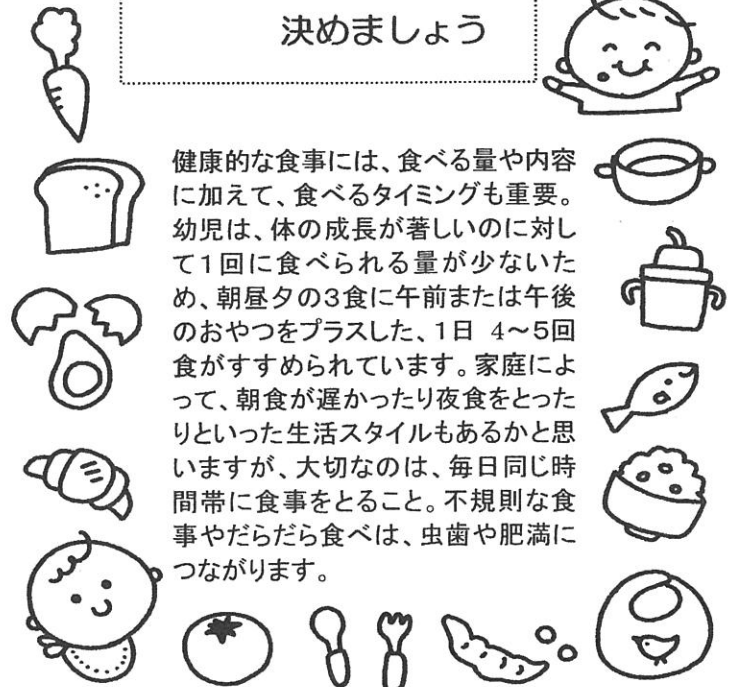 決めましょう
健康的な食事には、食べる量や内容
に加えて、食べるタイミングも重要。
幼児は、体の成長が著しいのに対し
て1回に食べられる量が少ないた
め、朝昼夕の3食に午前または午後
のおやつをプラスした、1日 4～5回
食がすすめられています。家庭によ
って、朝食が遅かったり夜食をとった
りといった生活スタイルもあるかと思
いますが、大切なのは、毎日同じ時
間帯に食事をとること。不規則な食
事やだらだら食べは、虫歯や肥満に
つながります。